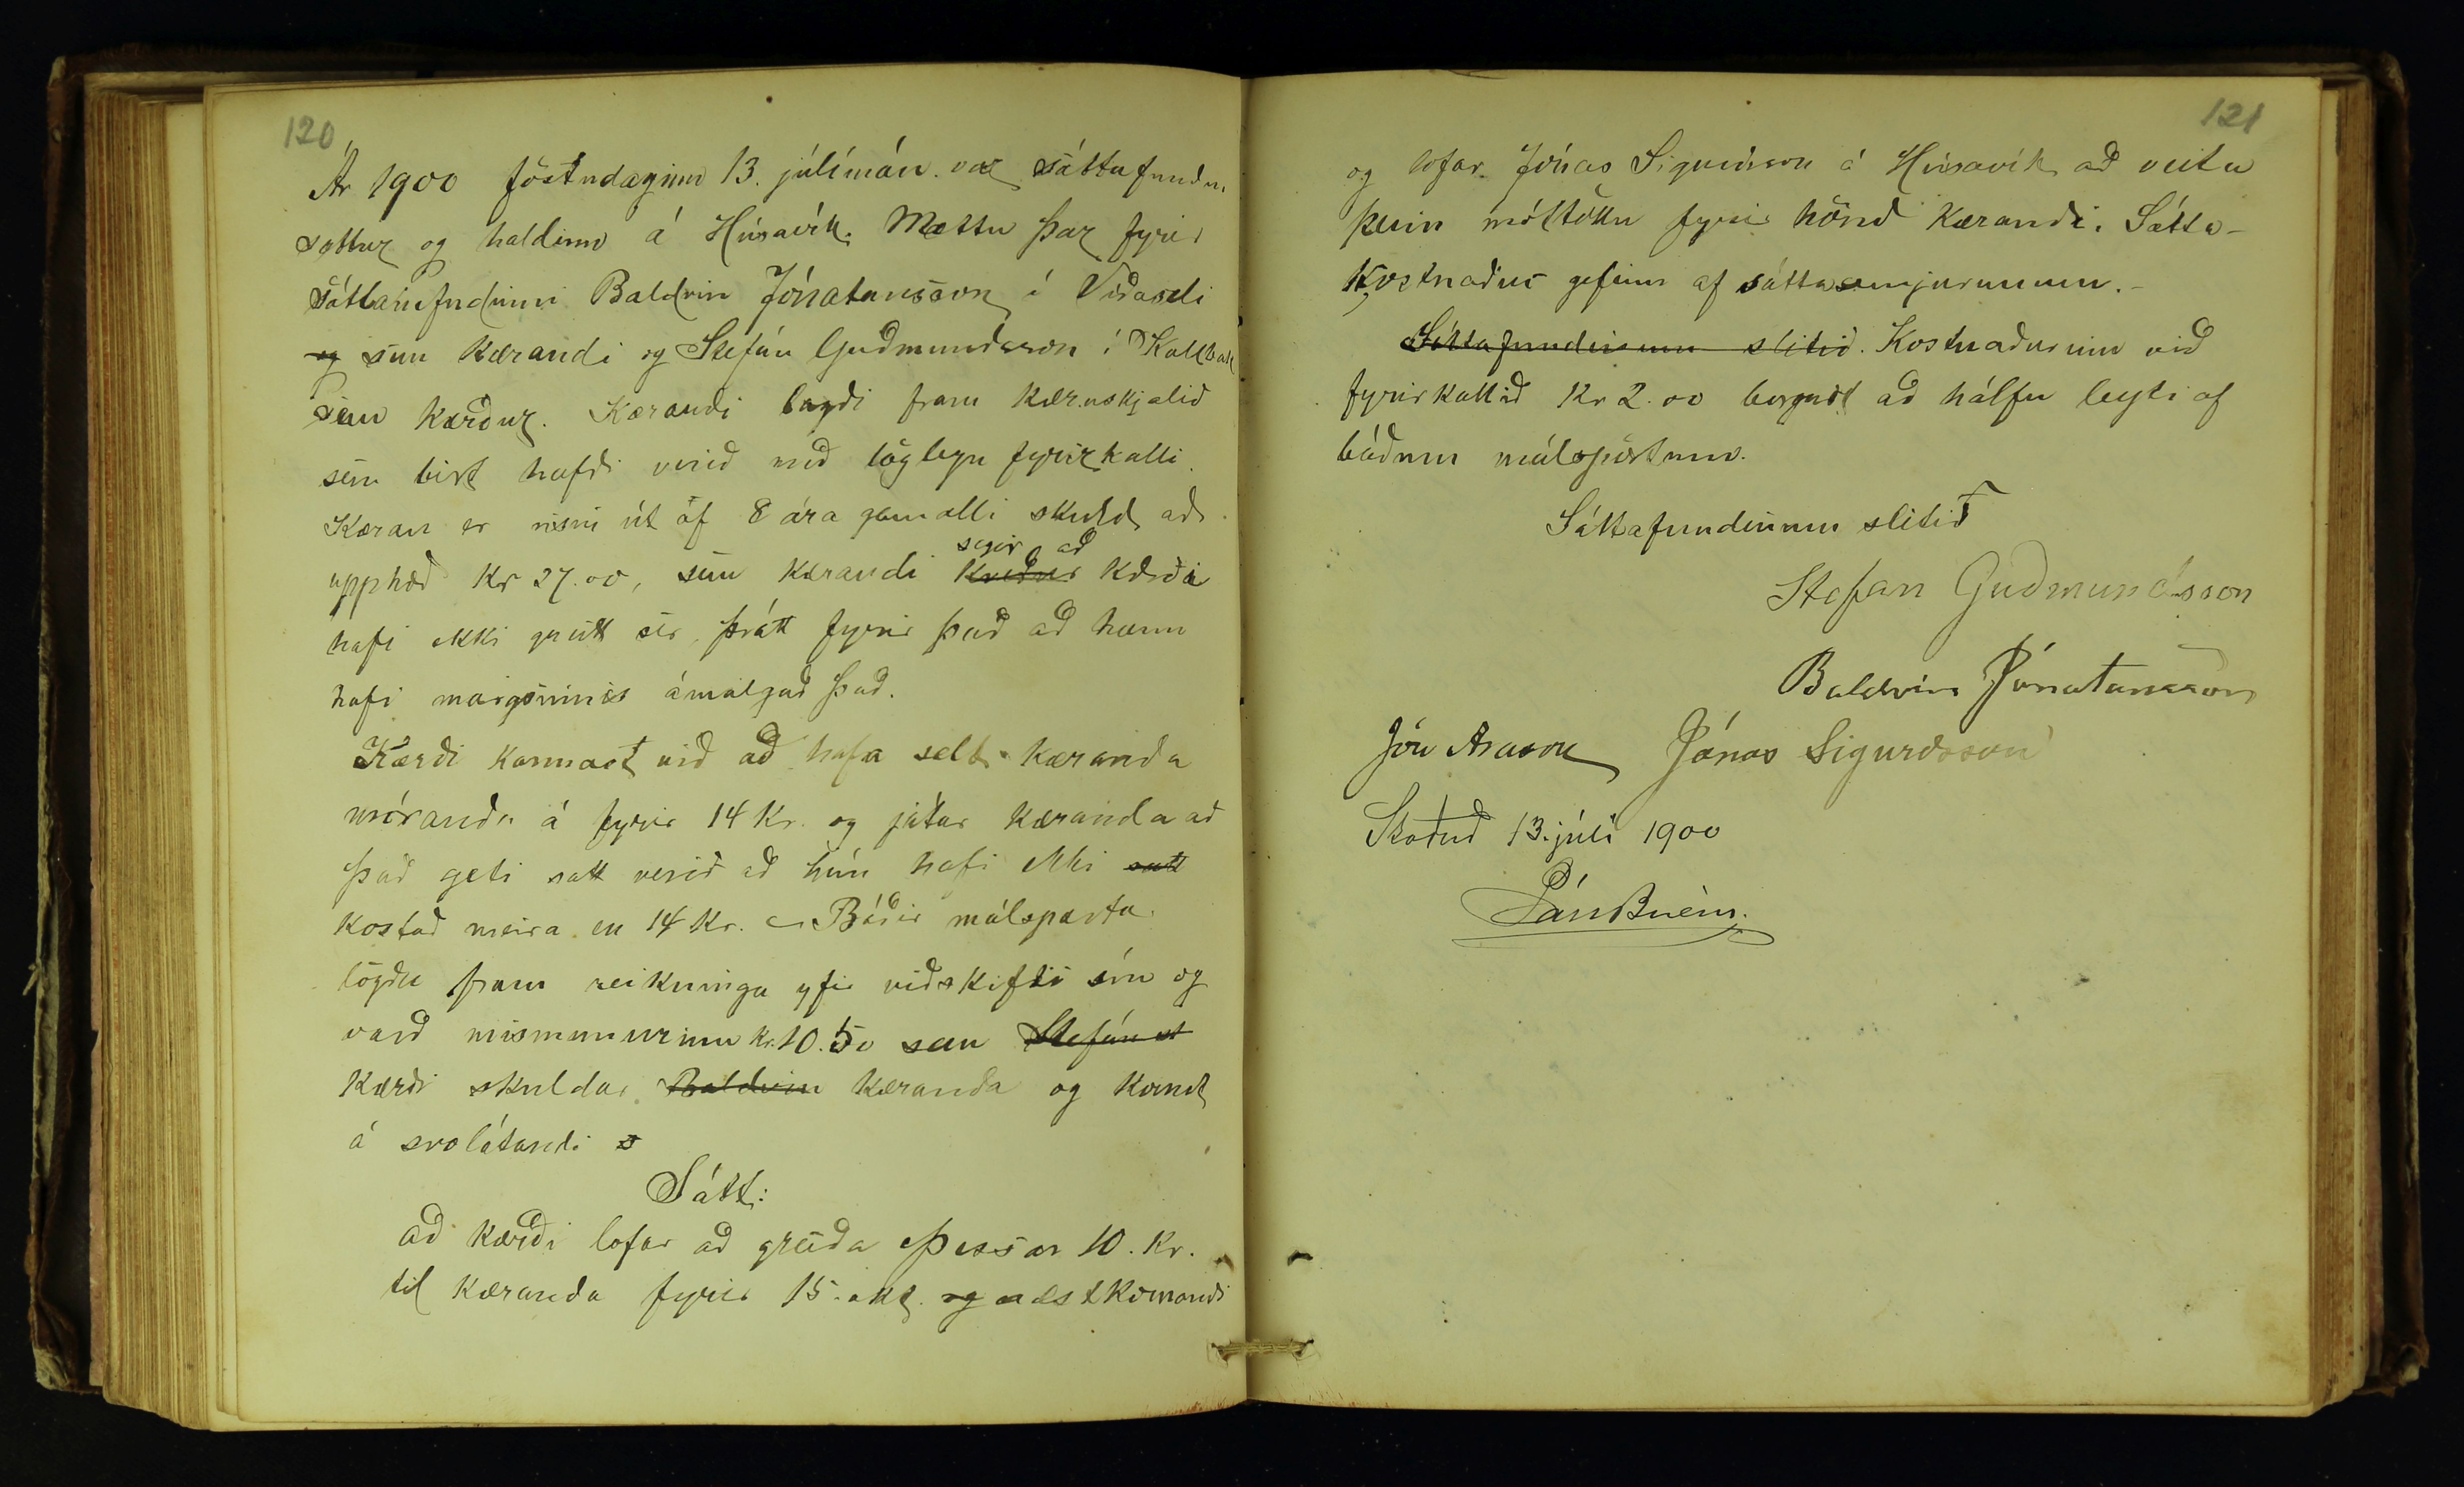 120
Ár 1900 föstudaginn 13. júlímán. var sáttafundur
settur og haldinn á Húsavík. Mættu þar fyrir
sáttanefndinni Baldvin Jónatansson í Víðaseli
og sem kærandi og Stefán Guðmundsson í Kallbak
sem kærður. Kærandi lagði fram kæruskjalið
sem birt hafði verið með löglegu fyrirkalli.
Kæran er risin út af 8 ára gamalli skuld að
upphæð Kr 27.00, sem kærandi kveður segir að kærði
hafi ekki greitt sér, þrátt fyrir það að hann
hafi margsinnis ámálgað það.
Kærði kannast við að hafa selt kæranda
móranda á fyrir 14 Kr. og játar kæranda að
það geti satt verið að hún hafi ekki satt
kostað meira en 14 Kr. – Báðir málsparta
lögðu fram reikninga yfir viðskifti sín og
varð mismunurinn Kr. 10.50 sem Stefán st
kærði skuldar Baldvin kæranda og komst
á svolátandi s
Sátt:
að kærði lofar að greiða þessar 10. Kr.
til kæranda fyrir 15. okt. og næstkomandi
121
og lofar Jónas Sigurðsson á Húsavík að veita
þeim móttöku fyrir hönd kærandi. Sátta-
kostnaður gefinn af sáttasemjurunum. –
Sáttafundinum slitið. Kostnaðurinn við
fyrirkallið Kr 2.00 borgast að hálfu leyti af
báðum málspörtum.
Sáttafundinum slitið
Stefan Guðmundsson
Baldvin Jónatansson
Jón Arason Jónas Sigurðsson
Skoðuð 13. júlí 1900
Páll Briem.